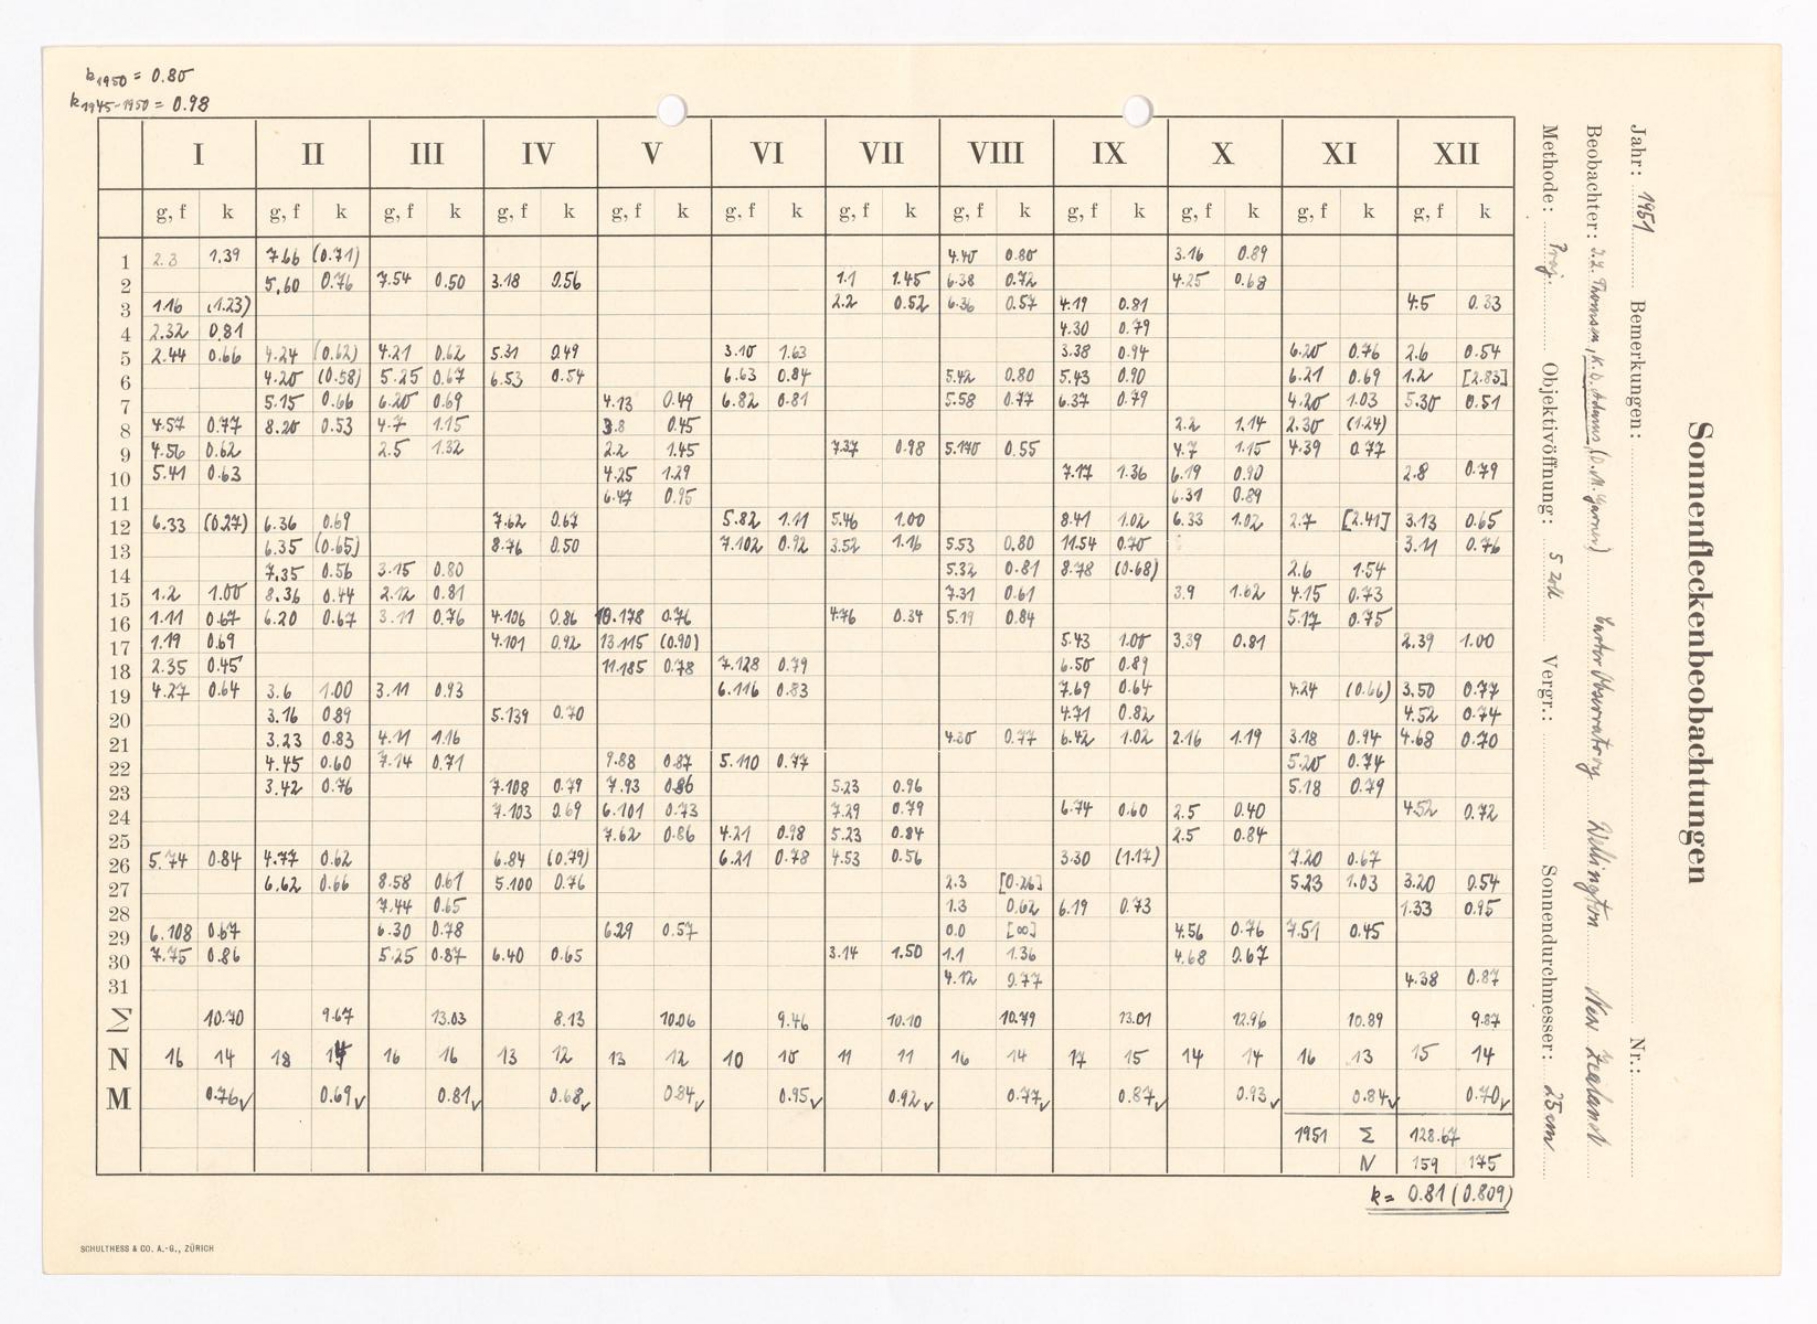 k1950 = 0.80
k1945-1950 = 0.98
Sonnenfleckenbeobachtungen
Jahr: 1951 Bemerkungen: Nr.:
Beobachter: K. D. Adams, Carter Observatory Wellington New Zealand
Methode: Proj. Objektivöffnung: 5 Zoll Vergr.: Sonnendurchmesser: 25cm
I II III IV V VI VII VIII IX X XI XII
g, f k g, f k g, f k g, f k g, f k g, f k g, f k g, f k g, f k g, f k g, f k g, f k
1 2.3 1.39 7.66 (0.71) 4.40 0.80 3.16 0.89
2 5.60 0.76 7.54 0.50 3.18 0.56 1.1 1.45 6.38 0.72 4.25 0.68
3 1.16 (1.23) 2.2 0.52 6.36 0.57 4.19 0.81 4.5 0.33
4 2.32 0.81 4.30 0.79
5 2.44 0.66 4.24 (0.62) 4.21 0.62 5.31 0.49 3.10 1.63 3.38 0.94 6.20 0.76 2.6 0.54
6 4.20 (0.58) 5.25 0.67 6.53 0.54 6.63 0.84 5.42 0.80 5.43 0.90 6.21 0.69 1.2 [2.83]
7 5.15 0.66 6.20 0.69 4.13 0.49 6.82 0.81 5.58 0.77 6.37 0.79 4.20 1.03 5.30 0.51
8 4.57 0.77 8.20 0.53 4.7 1.15 3.8 0.45 2.2 1.14 2.30 (1.24)
9 4.56 0.62 2.5 1.32 2.2 1.45 7.37 0.98 5.170 0.55 4.7 1.15 4.39 0.77
10 5.41 0.63 4.25 1.29 7.17 1.36 6.19 0.90 2.8 0.79
11 6.47 0.95 6.31 0.89
12 6.33 (0.27) 6.36 0.69 7.62 0.67 5.82 1.11 5.46 1.00 8.41 1.02 6.33 1.02 2.7 [2.41] 3.13 0.65
13 6.35 (0.65) 8.76 0.50 7.102 0.92 3.52 1.16 5.53 0.80 11.54 0.70 3.11 0.76
14 7.35 0.56 3.15 0.80 5.32 0.81 8.78 (0.68) 2.6 1.54
15 1.2 1.00 8.36 0.44 2.12 0.81 7.31 0.61 3.9 1.02 4.15 0.73
16 1.11 0.67 6.20 0.67 3.11 0.76 4.106 0.86 10.178 0.76 4.76 0.34 5.19 0.84 5.17 0.75
17 1.19 0.69 4.101 0.92 13.115 (0.90) 5.43 1.00 3.39 0.81 2.39 1.00
18 2.35 0.45 11.185 0.78 7.128 0.79 6.50 0.89
19 4.27 0.64 3.6 1.00 3.11 0.93 6.116 0.83 7.69 0.64 4.24 (0.66) 3.50 0.77
20 3.16 0.89 5.139 0.70 4.71 0.82 4.52 0.74
21 3.23 0.83 4.11 1.16 4.30 0.77 6.42 1.02 2.16 1.19 3.18 0.94 4.68 0.70
22 4.45 0.60 7.14 0.71 9.88 0.87 5.110 0.77 5.20 0.74
23 3.42 0.76 7.108 0.79 7.93 0.86 5.23 0.96 5.18 0.79
24 7.103 0.69 6.101 0.73 7.29 0.79 6.74 0.60 2.5 0.40 4.52 0.72
25 7.62 0.86 4.21 0.98 5.23 0.84 2.5 0.84
26 5.74 0.84 4.77 0.62 6.84 (0.79) 6.21 0.78 4.53 0.56 3.30 (1.17) 7.20 0.67
27 6.62 0.66 8.58 0.61 5.100 0.76 2.3 [0.26] 5.23 1.03 3.20 0.54
28 7.44 0.65 1.3 0.62 6.19 0.73 1.33 0.95
29 6.108 0.67 6.30 0.78 6.29 0.57 0.0 [∞] 4.56 0.76 7.51 0.45
30 7.75 0.86 5.25 0.87 6.40 0.65 3.14 1.50 1.1 1.36 4.68 0.67
31 4.12 0.77 4.38 0.87
Σ 10.70 9.67 13.03 8.13 10.06 9.46 10.10 10.79 13.01 12.96 10.89 9.87
N 16 14 18 14 16 16 13 12 13 12 10 10 11 11 16 14 17 15 14 14 16 13 15 14
M 0.76✓ 0.69✓ 0.81✓ 0.68✓ 0.84✓ 0.95✓ 0.92✓ 0.77✓ 0.87✓ 0.93✓ 0.84✓ 0.70✓
1951 Σ 128.67
N 159 175
k = 0.81 (0.809)
SCHULTHESS & CO. A.-G., ZÜRICH